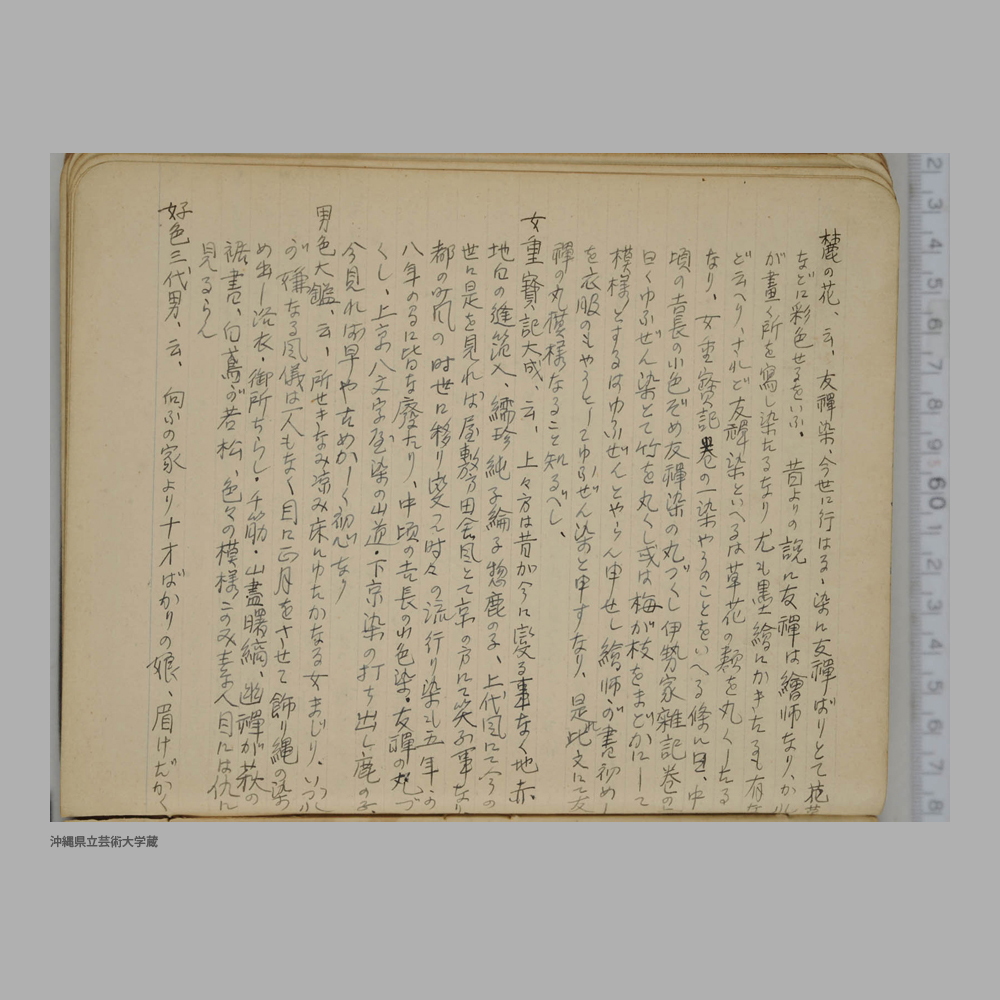 麓の花、云、友禪染、今世に行はるゝ染に友禪ばりとて花草
などに彩色せるをいふ、昔よりの説に友禪は繪師なり、かれ
が畫く所を寫し染たるなり、尤も墨繪にかきたるも有な
ど云へり、されど友禪染といへるは草花の類を丸くしたる
なり、女重寳記巻の一染やうのことをいへる條に曰、中
頃の吉長の小色ぞめ友禪染の丸づくし伊勢家雜記巻の
曰くゆふぜん染とて竹を丸くし或は梅が枝をまどかにして
模様とするはゆふぜんとやらん申せし繪師が書初めし
を衣服のもやうとしてゆふぜん染のと申すなり、是此文にて友
禪の丸模様なること知るべし、
女重寳記大成、云、上々方は昔が今に変る事なく地赤
地白の縫箔入、繻珍純子綸子惣鹿の子、上代風にて今の
世に是を見れば屋敷方田舎風とて京の方にて笑ふ事なり
都の町風の時世に移り変つて時々の流行り染も五年か
八年のるに皆な廢たり、中頃の吉長の小色染・友禪の丸づ
くし、上京八文字屋染の山道・下京染の打ち出し鹿の子
今見れば早や古めかしく初心なり
男色大鑑、云、所せきなみ涼み床にゆたかなる女まじり、いづれ
が嫌なる風儀は一人もなく目に正月をさせて飾り縄の染
め出し浴衣・御所ちらし・千筋・山盡曙縞、幽禪が萩の
裾書、白鳶が若松、色々の模様このみ素人目には仇に
見るらん
好色三代男、云、向ふの家より十才ばかりの娘、眉けだかく
沖縄県立芸術大学蔵